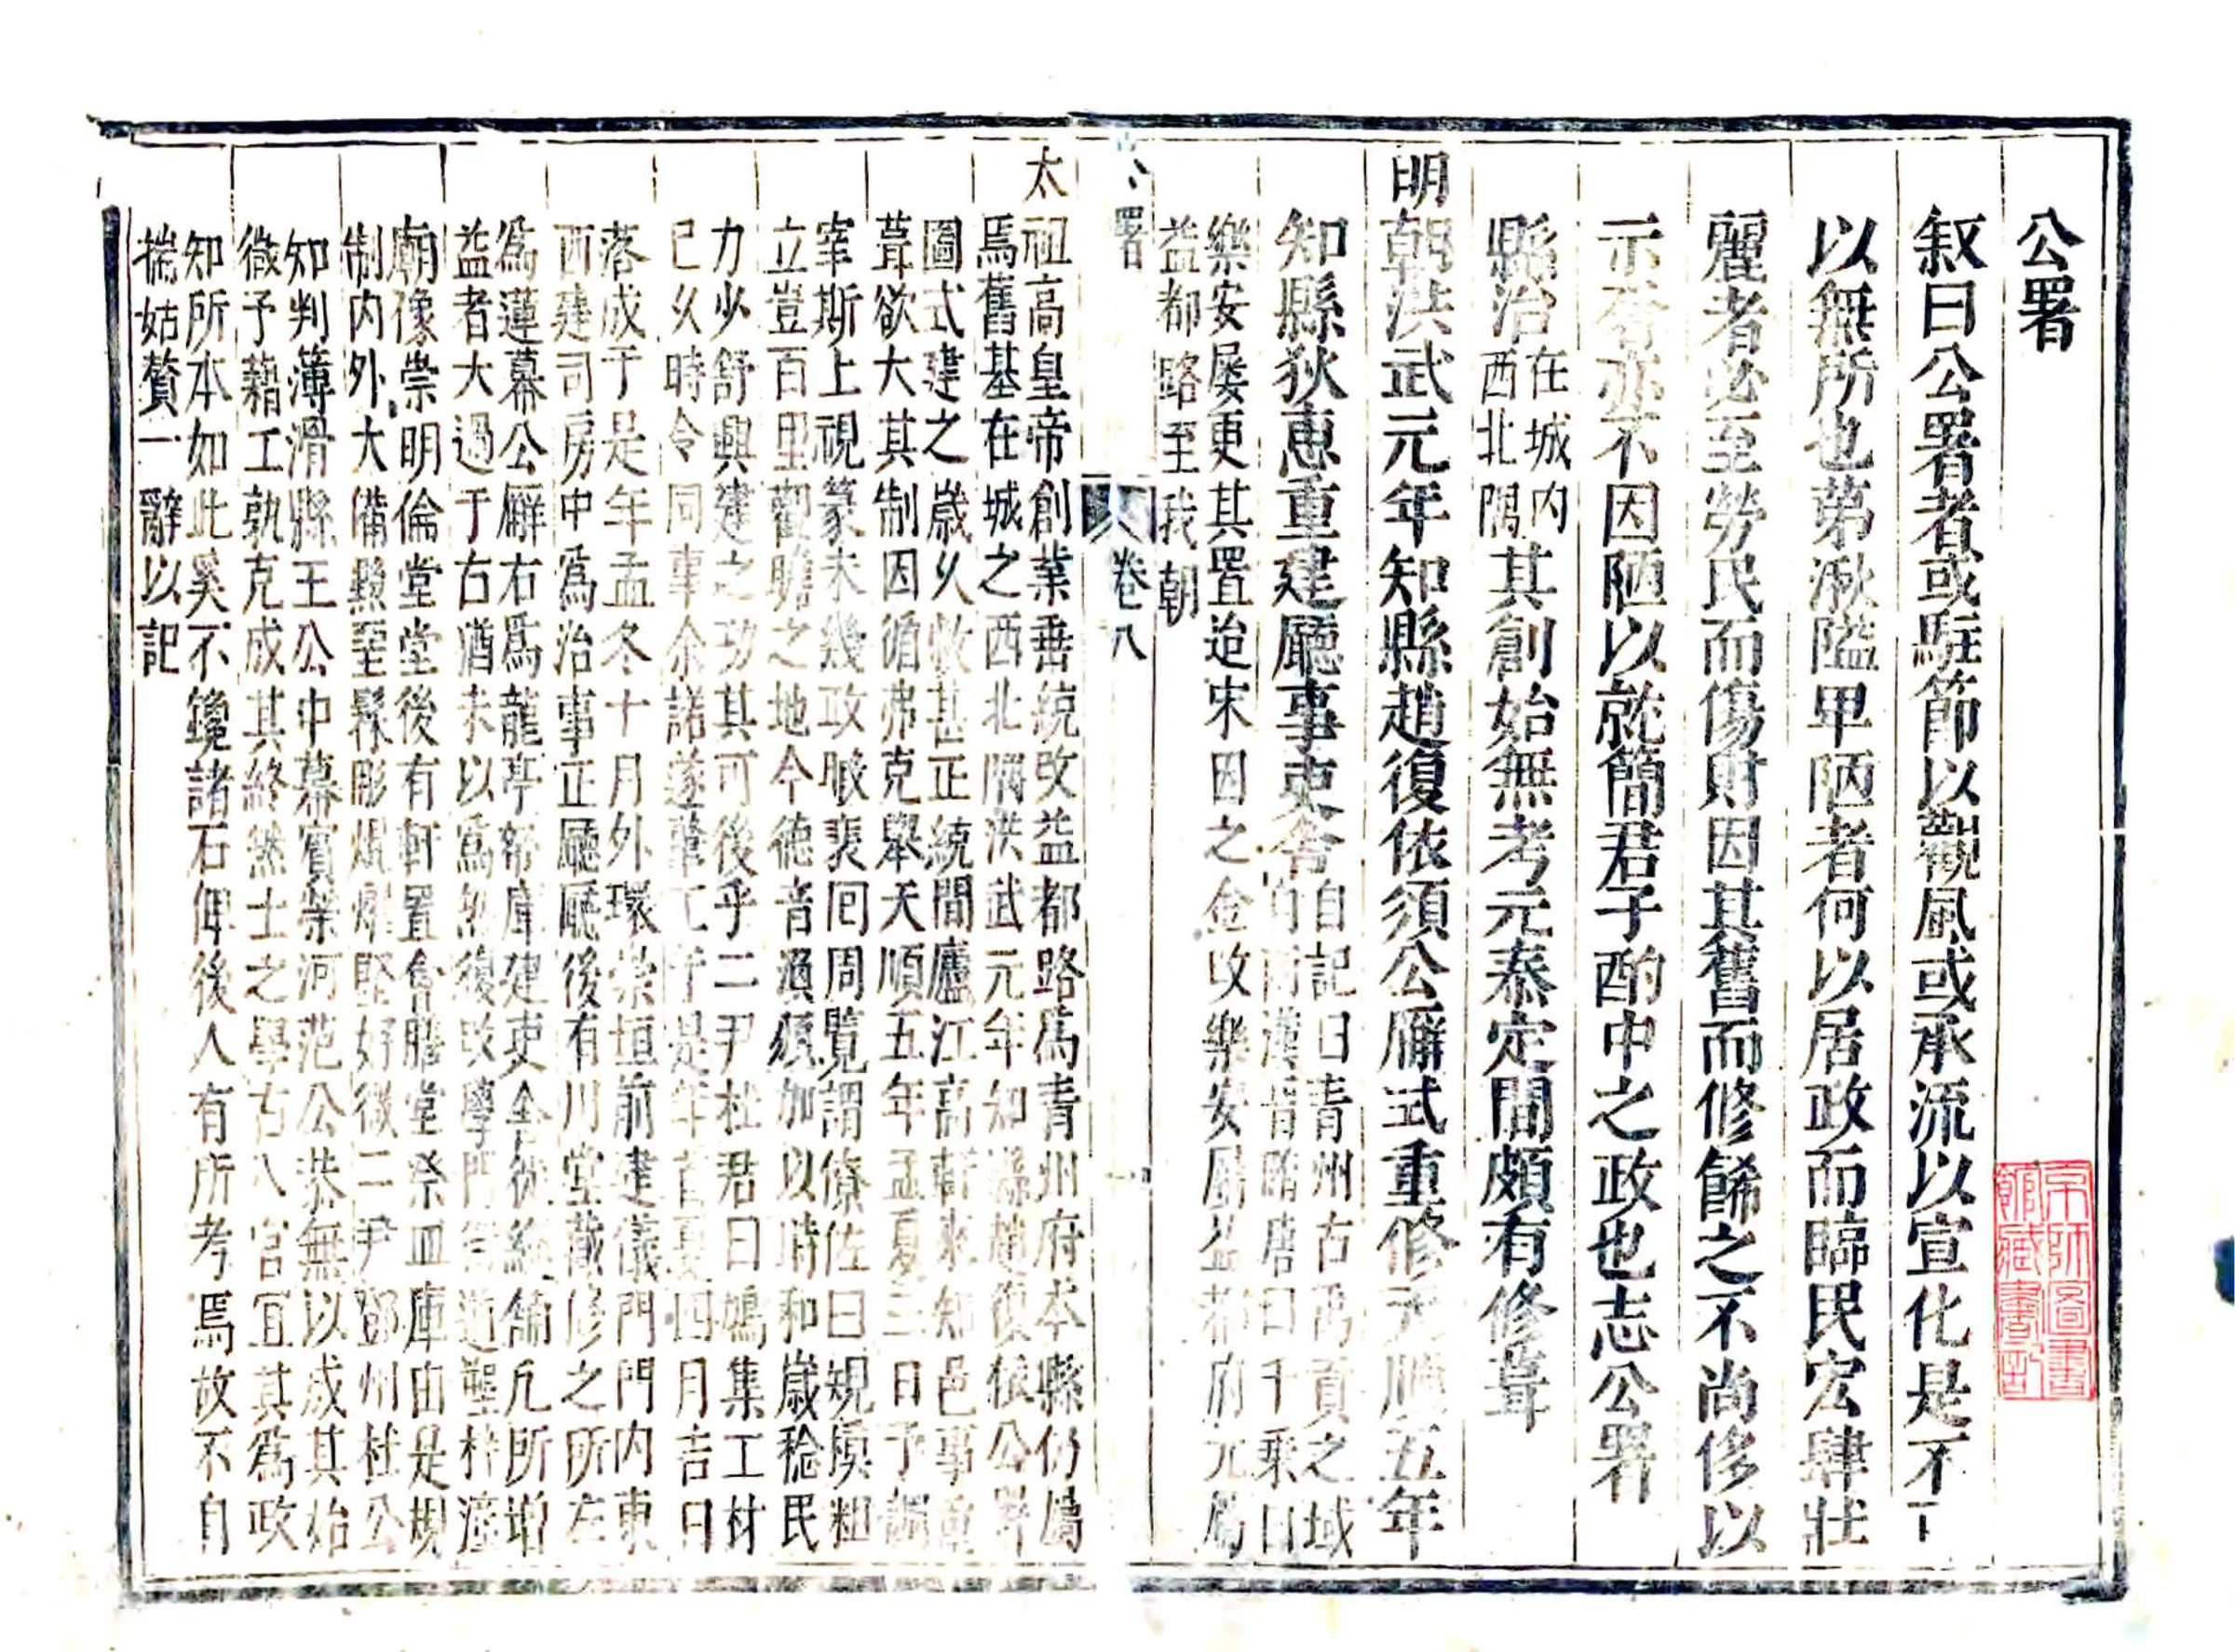 公署
叙曰公署者或駐節以觀風或承流以宣化是不可
以無所也第湫隘卑陋者何以居政而臨民宏肆壯
麗者必至勞民而傷財因其舊而修餙之不尚侈以
示奢亦不因陋以就簡君子酌中之政也志公署
縣治在城内
西北隅其創始無考元泰定間頗有修葺
明朝洪武元年知縣趙復依須公廨式重修天順五年
知縣狄惠重建廳事吏舍
自記曰青州古禹貢之域
兩漢晉隋唐曰千乘曰
樂安屡更其置迨宋因之金改樂安屬益都府元屬
益都路至我朝
公署
卷八
一
太祖高皇帝創業垂統改益都路為青州府本縣仍屬
焉舊基在城之西北隅洪武元年知縣趙復依公廨
圖式建之歲久敝甚正統間廬江高軒來知邑事重
葺欲大其制因循弗克舉天順五年孟夏三日予調
宰斯上視篆未幾政暇裵回周覧謂僚佐曰規模粗
立豈百里觀瞻之地今德音適頒加以時和歲稔民
力少舒興建之功其可後乎二尹杜君曰鳩集工材
已久時令同事余諾遂肇工于是年首夏四月吉日
落成于是年孟冬十月外環崇垣前建儀門門内東
西建司房中為治事正廳廳後有川堂藏修之所左
為蓮幕公廨右爲龍亭帑庫建吏舍秋総舖凢所増
益者大過于右猶未以爲然復改學門塑梓潼
廟像崇明倫堂堂後有軒置會膳堂祭皿庫由是規
制内外大備黙堊髹彫煥燿堅好徴二尹鄧州杜公
知判簿滑縣王公中幕賓榮河范公恭無以成其始
徴予藉工孰克成其終然士之學古入官宜其爲政
知所本如此奚不鑱諸石俾後人有所考焉故不自
揣姑贅一辭以記
京師圖書
館藏書記